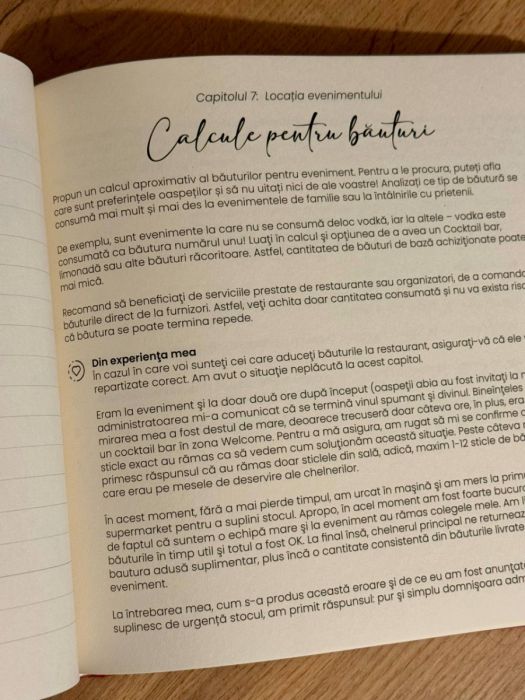 Capitolul 7: Locația evenimentului
Calcule pentru băuturi
Propun un calcul aproximativ al băuturilor pentru eveniment. Pentru a le procura, puteți afla
care sunt preferințele oaspeților și să nu uitați nici de ale voastre! Analizați ce tip de băutură se
consumă mai mult și mai des la evenimentele de familie sau la întâlnirile cu prietenii.
De exemplu, sunt evenimente la care nu se consumă deloc vodkă, iar la altele – vodka este
consumată ca băutura numărul unu! Luați în calcul și opțiunea de a avea un Cocktail bar,
limonadă sau alte băuturi răcoritoare. Astfel, cantitatea de băuturi de bază achiziționate poate
mai mică.
Recomand să beneficiați de serviciile prestate de restaurante sau organizatori, de a comanda
băuturile direct de la furnizori. Astfel, veți achita doar cantitatea consumată și nu va exista
că băutura se poate termina repede.
Din experiența mea
În cazul în care voi sunteți cei care aduceți băuturile la restaurant, asigurați-vă că ele
repartizate corect. Am avut o situație neplăcută la acest capitol.
Eram la eveniment și la doar două ore după început (oaspeții abia au fost invitați la
administratoarea mi-a comunicat că se termină vinul spumant și divinul. Bineînțeles
mirarea mea a fost destul de mare, deoarece trecuseră doar câteva ore, în plus, era
un cocktail bar în zona Welcome. Pentru a mă asigura, am rugat să mi se confirme
sticle exact au rămas ca să vedem cum soluționăm această situație. Peste câteva
primesc răspunsul că au rămas doar sticlele din sală, adică, maxim 1-12 sticle de
care erau pe mesele de deservire ale chelnerilor.
În acest moment, fără a mai pierde timpul, am urcat în mașină și am mers la
supermarket pentru a suplini stocul. Apropo, în acel moment am fost foarte
de faptul că suntem o echipă mare și la eveniment au rămas colegele mele. Am
băuturile în timp util și totul a fost OK. La final însă, chelnerul principal ne
bautura adusă suplimentar, plus încă o cantitate consistentă din băuturile livrate
eveniment.
La întrebarea mea, cum s-a produs această eroare și de ce eu am fost
suplinesc de urgență stocul, am primit răspunsul: pur și simplu domnișoara